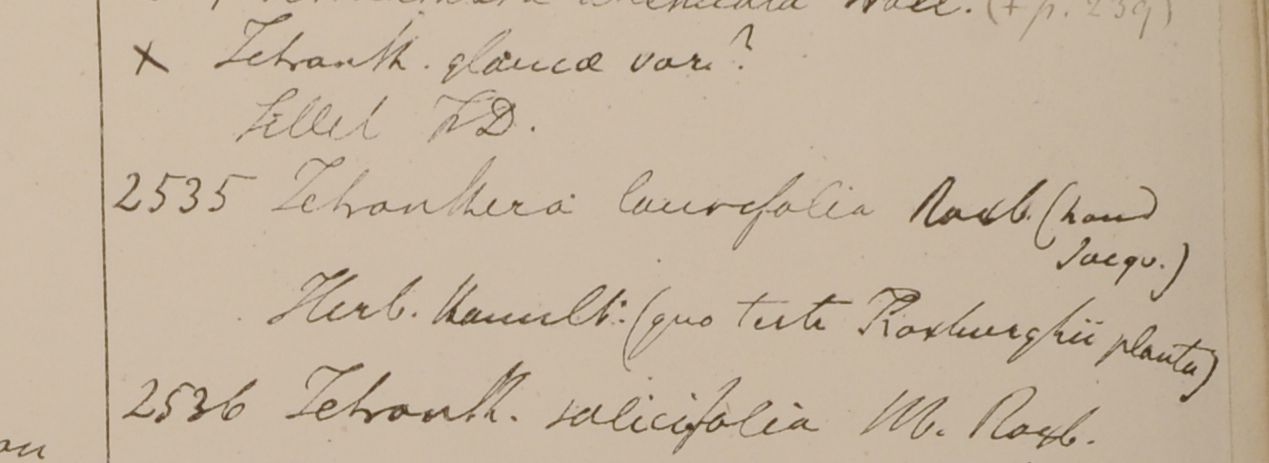 Wall. (+ p. 239)
x Tetranth. glauca var.?
Sillet FD.
2535 Tetranthera laurifolia Roxb. (haud
Jacqu.)
Herb. Hamilt: (quo teste Roxburghii planta)
2536 Tetranth. salicifolia M. Roxb.